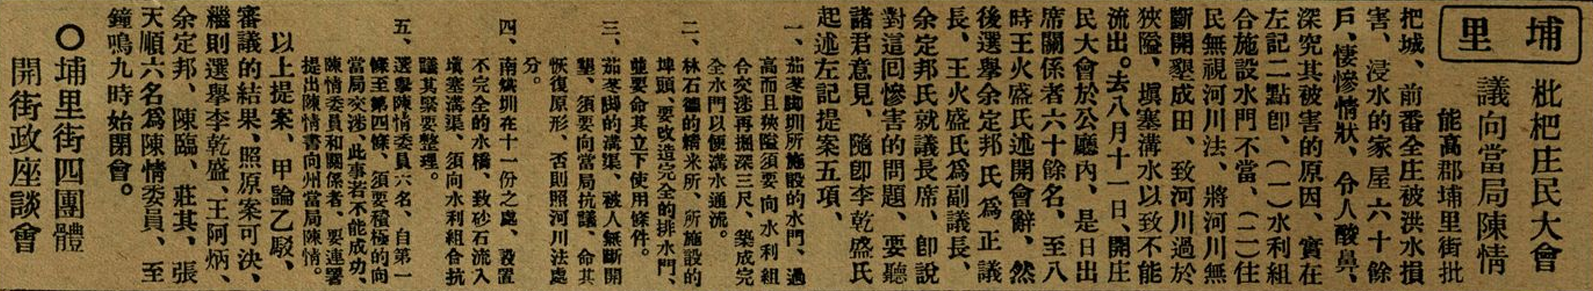 埔里
枇杷庄民大會
議向當局陳情
能高郡埔里街批
把城、前番全庄被洪水損
害、浸水的家屋六十餘
戶、悽慘情狀、令人酸鼻、
深究其被害的原因、實在
左記二點卽、(一)水利組
合施設水門不當、(二)住
民無視河川法、將河川無
斷開墾成田、致河川過於
狹隘、塡塞溝水以致不能
流出。去八月十一日、開庄
民大會於公廳內、是日出
席關係者六十餘名、至八
時王火盛氏述開會辭、然
後選舉余定邦氏爲正議
長、王火盛氏爲副議長、
余定邦氏就議長席、卽說
對這回慘害的問題、要聽
諸君意見、隨卽李乾盛氏
起述左記提案五項、
一、茄苳脚圳所施設的水門、過
高而且狹隘須要向水利組
合交涉再掘深三尺、築成完
全水門以便溝水通流。
二、林石德的精米所、所施設的
埤頭、要改造完全的排水門、
並要命其立下使用條件。
三、茄苳脚的溝渠、被人無斷開
墾、須要向當局抗議、命其
恢復原形、否則照河川法處
分。
四、南烘圳在十一份之處、設置
不完全的水橋、致砂石流入
塡塞溝渠、須向水利組合抗
議其緊要整理。
五、選舉陳情委員六名、自第一
條至第四條、須要積極的向
當局交涉、此事者不能成功、
陳情委員和關係者、要連署
提出陳情書向州當局陳情。
以上提案、甲論乙駁、
審議的結果、照原案可決、
繼則選舉李乾盛、王阿炳、
余定邦、陳臨、莊其、張
天順六名爲陳情委員、至
鐘鳴九時始閉會。
○埔里街四團體
開街政座談會